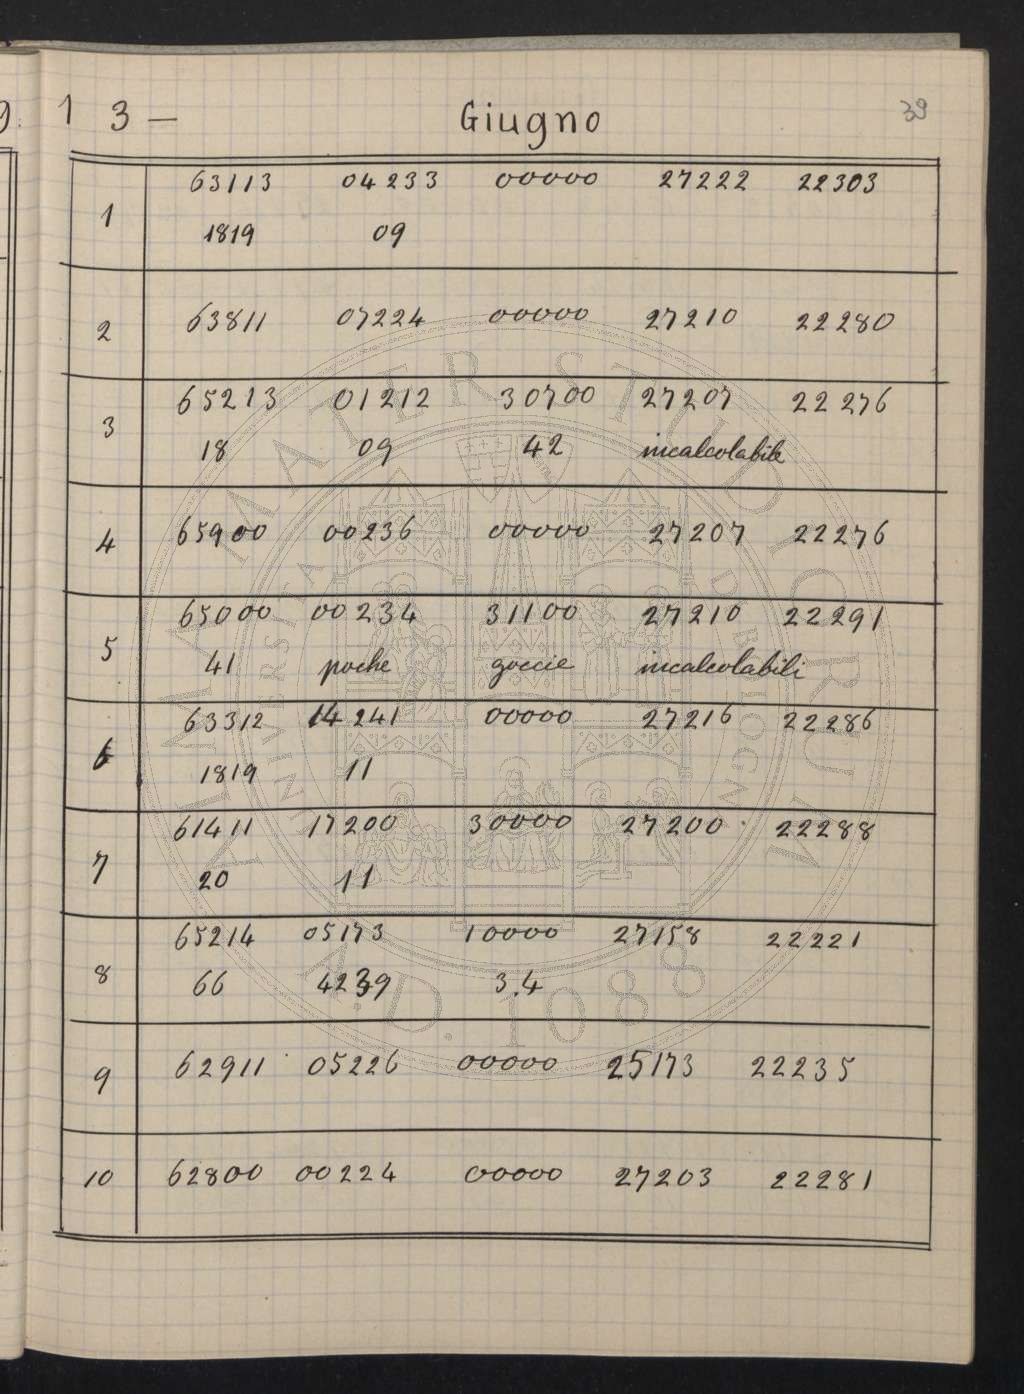 1 3 — Giugno 39
63113 04233 00000 27222 22303
1
1819 09
2 63811 07224 00000 27210 22280
65213 01212 30700 27207 22276
3
18 09 42 incalcolabile
4 65900 00236 00000 27207 22276
65000 00234 31100 27210 22291
5
41 poche goccie incalcolabili
63312 14241 00000 27216 22286
6
1819 11
61411 17200 30000 27200 22288
7
20 11
65214 05173 10000 27158 22221
8
66 4239 3.4
9 62911 05226 00000 25173 22235
10 62800 00224 00000 27203 22281
ALMA MATER STUDIORUM
UNIVERSITÀ DI BOLOGNA
A.D. 1088